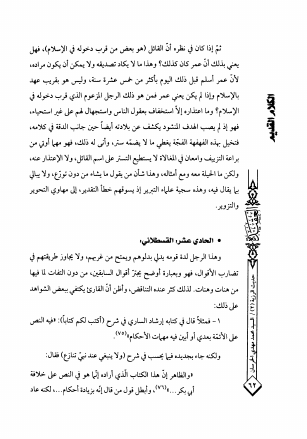 ثمّ إذا كان في نظره أنّ القائل (هو بعض من قرب دخوله في الإسلام)، فهل
يعني بذلك أنّ عمر كان كذلك؟ وهذا ما لا يكاد تصديقه ولا يمكن أن يكون مراده،
لأنّ عمر أسلم قبل ذلك اليوم بأكثر من خمس عشرة سنة، وليس هو بقريب عهد
بالإسلام وإذا لم يكن يعني عمر فمن هو ذلك الرجل المزعوم الذي قرب دخوله في
الإسلام؟ وما اعتذاره إلاّ استخفاف بعقول الناس واستجهال لهم على غير استحياء،
فهو إذ لم يصب الهدف المنشود يكشف عن بلادته أيضاً حين جانب الدقة في كلامه،
فتخيل بهذه الفهفهة الفجّة يغطي ما لا يضمّه ستر، وأنى له ذلك، فهو مهما أوتي من
براعة التزييف وإمعان في المغالاة لا يستطيع التستّر على اسم القائل، ولا الإعتذار عنه،
ولكن ما الحيلة معه ومع أمثاله، وهذا شأن من يقول ما يشاء من دون تورّع، ولا يبالي
بما يقال فيه، وهذه سجية علماء التبرير إذ يسوقهم خطأ التقدير، إلى مهاوي التحوير
والتزوير.
• الحادي عشر: القسطلاني:
وهذا الرجل لدة قومه يدلي بدلوهم ويمتح من غربهم، ولا يجاوز طريقتهم في
تضارب الأقوال، فهو وبعبارة أوضح يجترّ أقوال السابقين، من دون التفات لما فيها
من هنات وهنات. لذلك كثر عنده التناقض، وأظن أنّ القارئ يكتفي ببعض الشواهد
على ذلك:
١ - فمثلاً قال في كتابه إرشاد الساري في شرح (أكتب لكم كتاباً): «فيه النص
على الأئمة بعدي أو أبين فيه مهمات الأحكام»(٧٥).
ولكنه جاء بجديده فيما يحسب في شرح (ولا ينبغي عند نبيّ تنازع) فقال:
«والظاهر إنّ هذا الكتاب الّذي أراده إنّما هو في النص على خلافة
أبي بكر...»(٧٦)، وأبطل قول من قال إنّه بزيادة أحكام...، لكنه عاد
٦٢